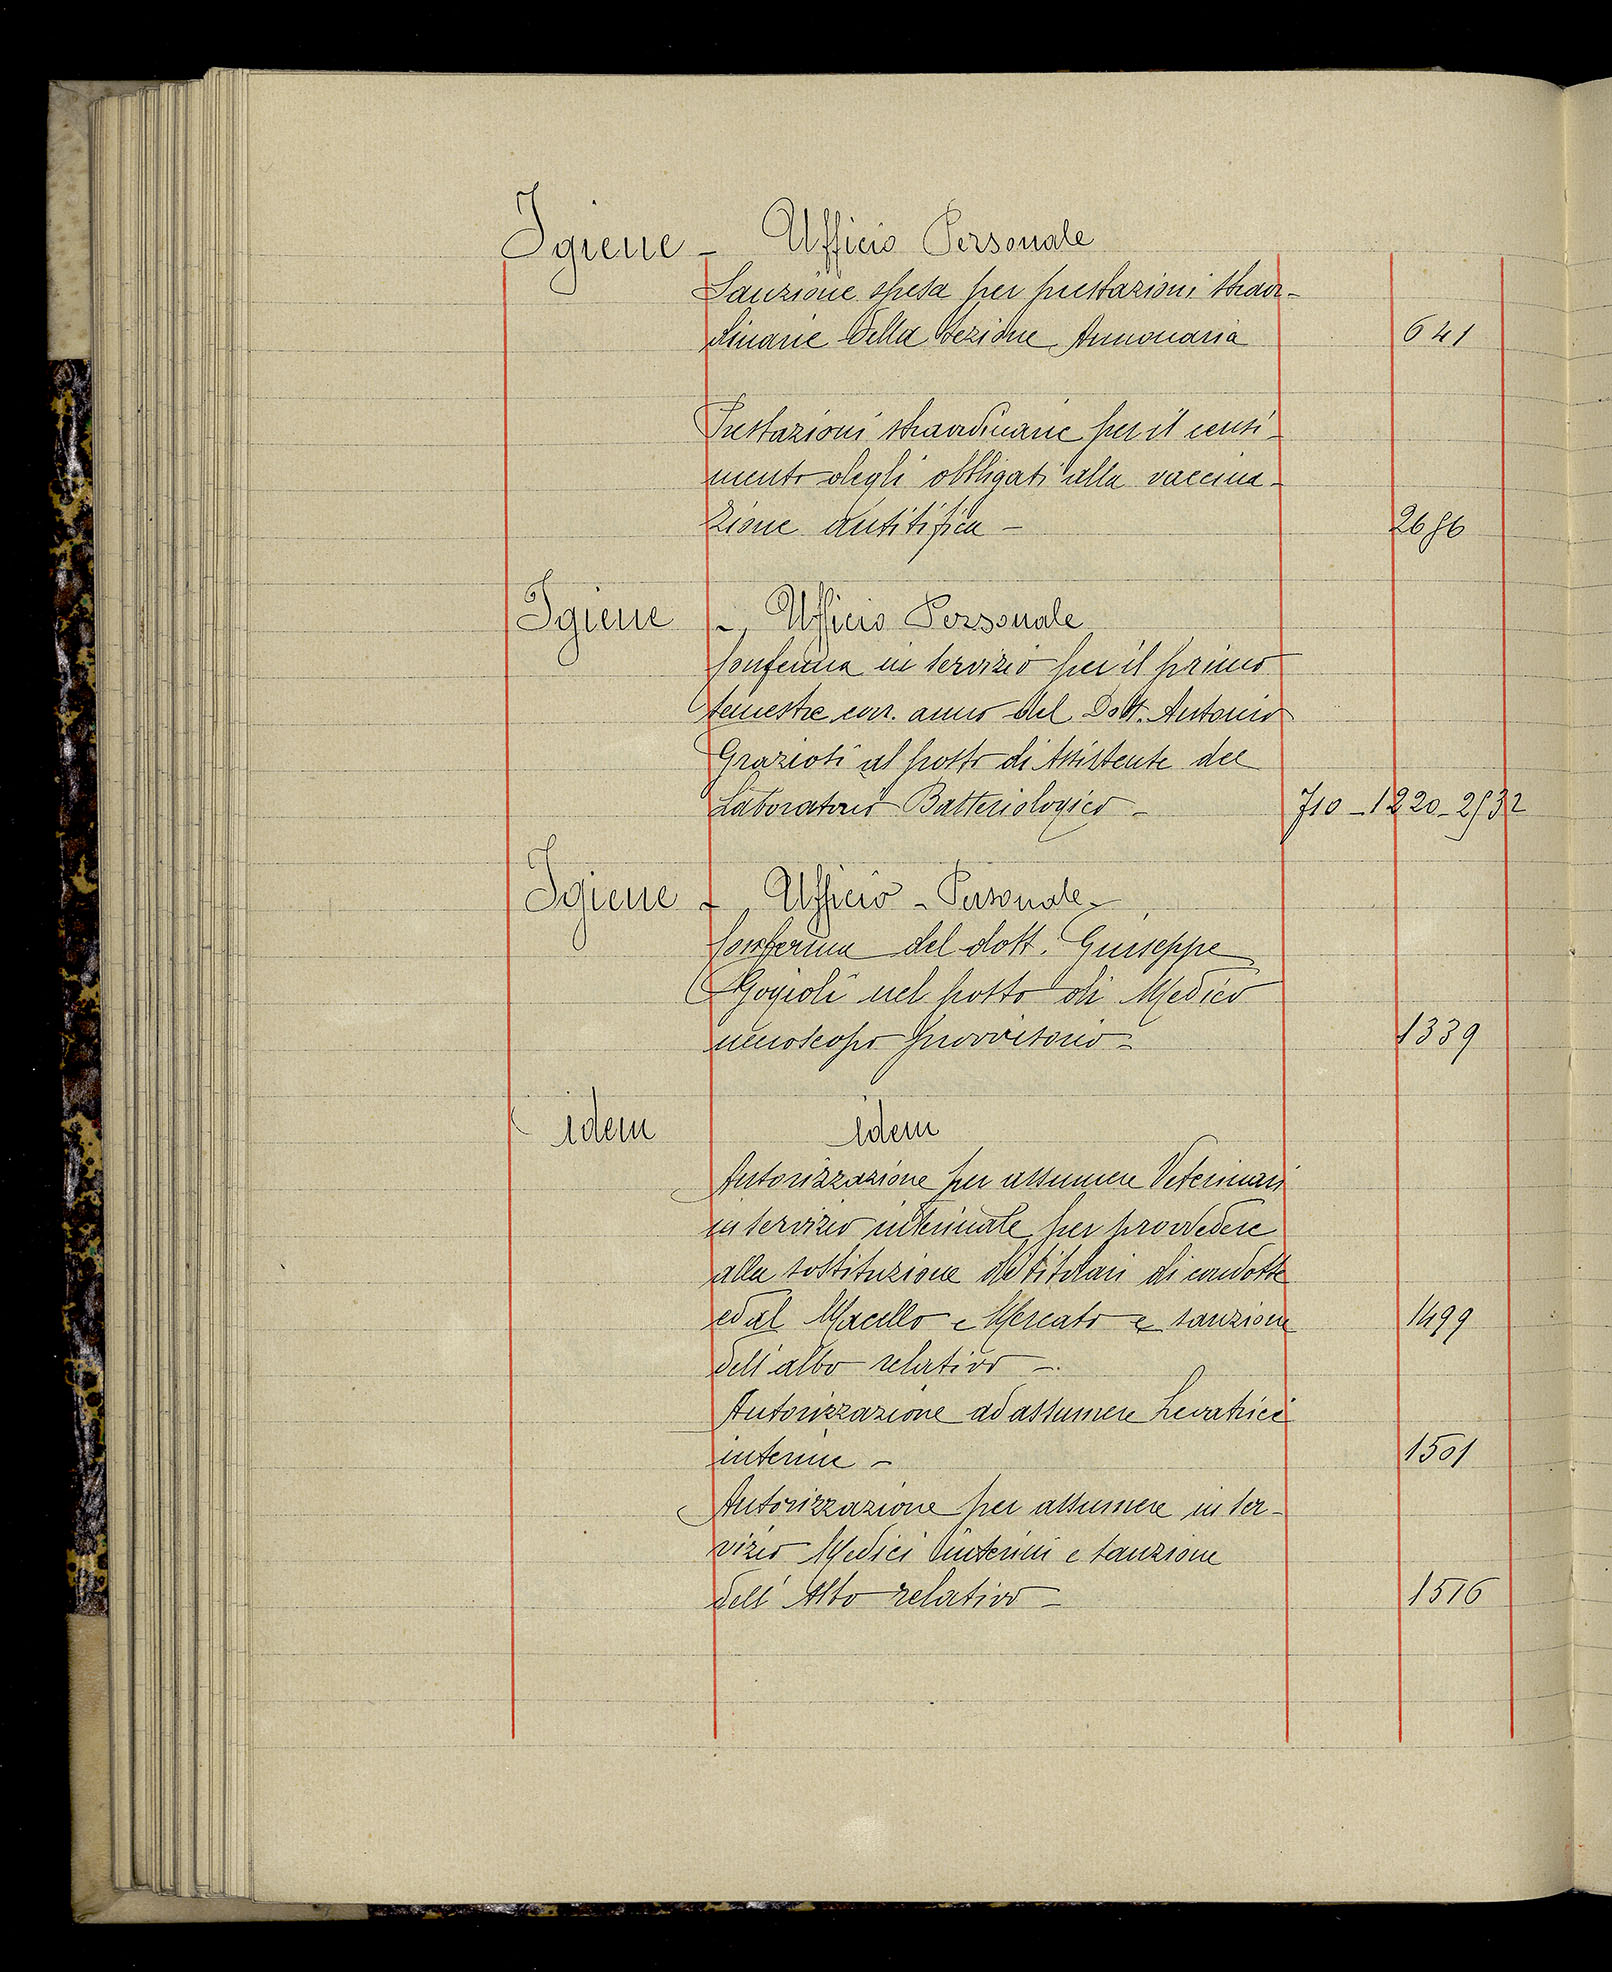 Igiene - Ufficio Personale
Sanzione spesa per prestazioni straor-
dinarie della Sezione Annonaria 641
Prestazioni straordinarie per il censi-
mento degli obbligati alla vaccina-
zione antitifica - 2696
Igiene - Ufficio Personale
Conferma in servizio per il primo
semestre corr. anno del Dott. Antonio
Grazioti al posto di Assistente del
Laboratorio Batteriologico - 710 - 1220 - 2932
Igiene - Ufficio - Personale -
Conferma del dott. Giuseppe
nel posto di Medico
necroscopo provvisorio - 1339
idem idem
Autorizzazione per assumere Veterinari
in servizio interinale per provvedere
alla sostituzione dei titolari di condotte
ed al Macello e Mercato e sanzione 1499
dell'albo relativo -
Autorizzazione ad assumere Levatrici
interine - 1501
Autorizzazione per assumere in ser-
vizio Medici interini e sanzione
dell'Albo relativo - 1516